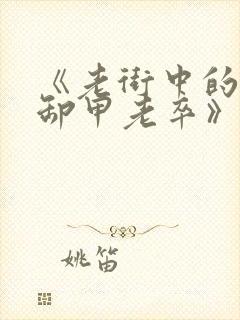 《老街中的
卸甲老卒》
姚笛